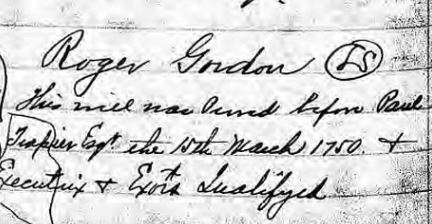 Roger Gordon (LS)
This will was proved before Paul
Trapier Esqr the 15th March 1750. &
Executrix & Exors Qualifyed